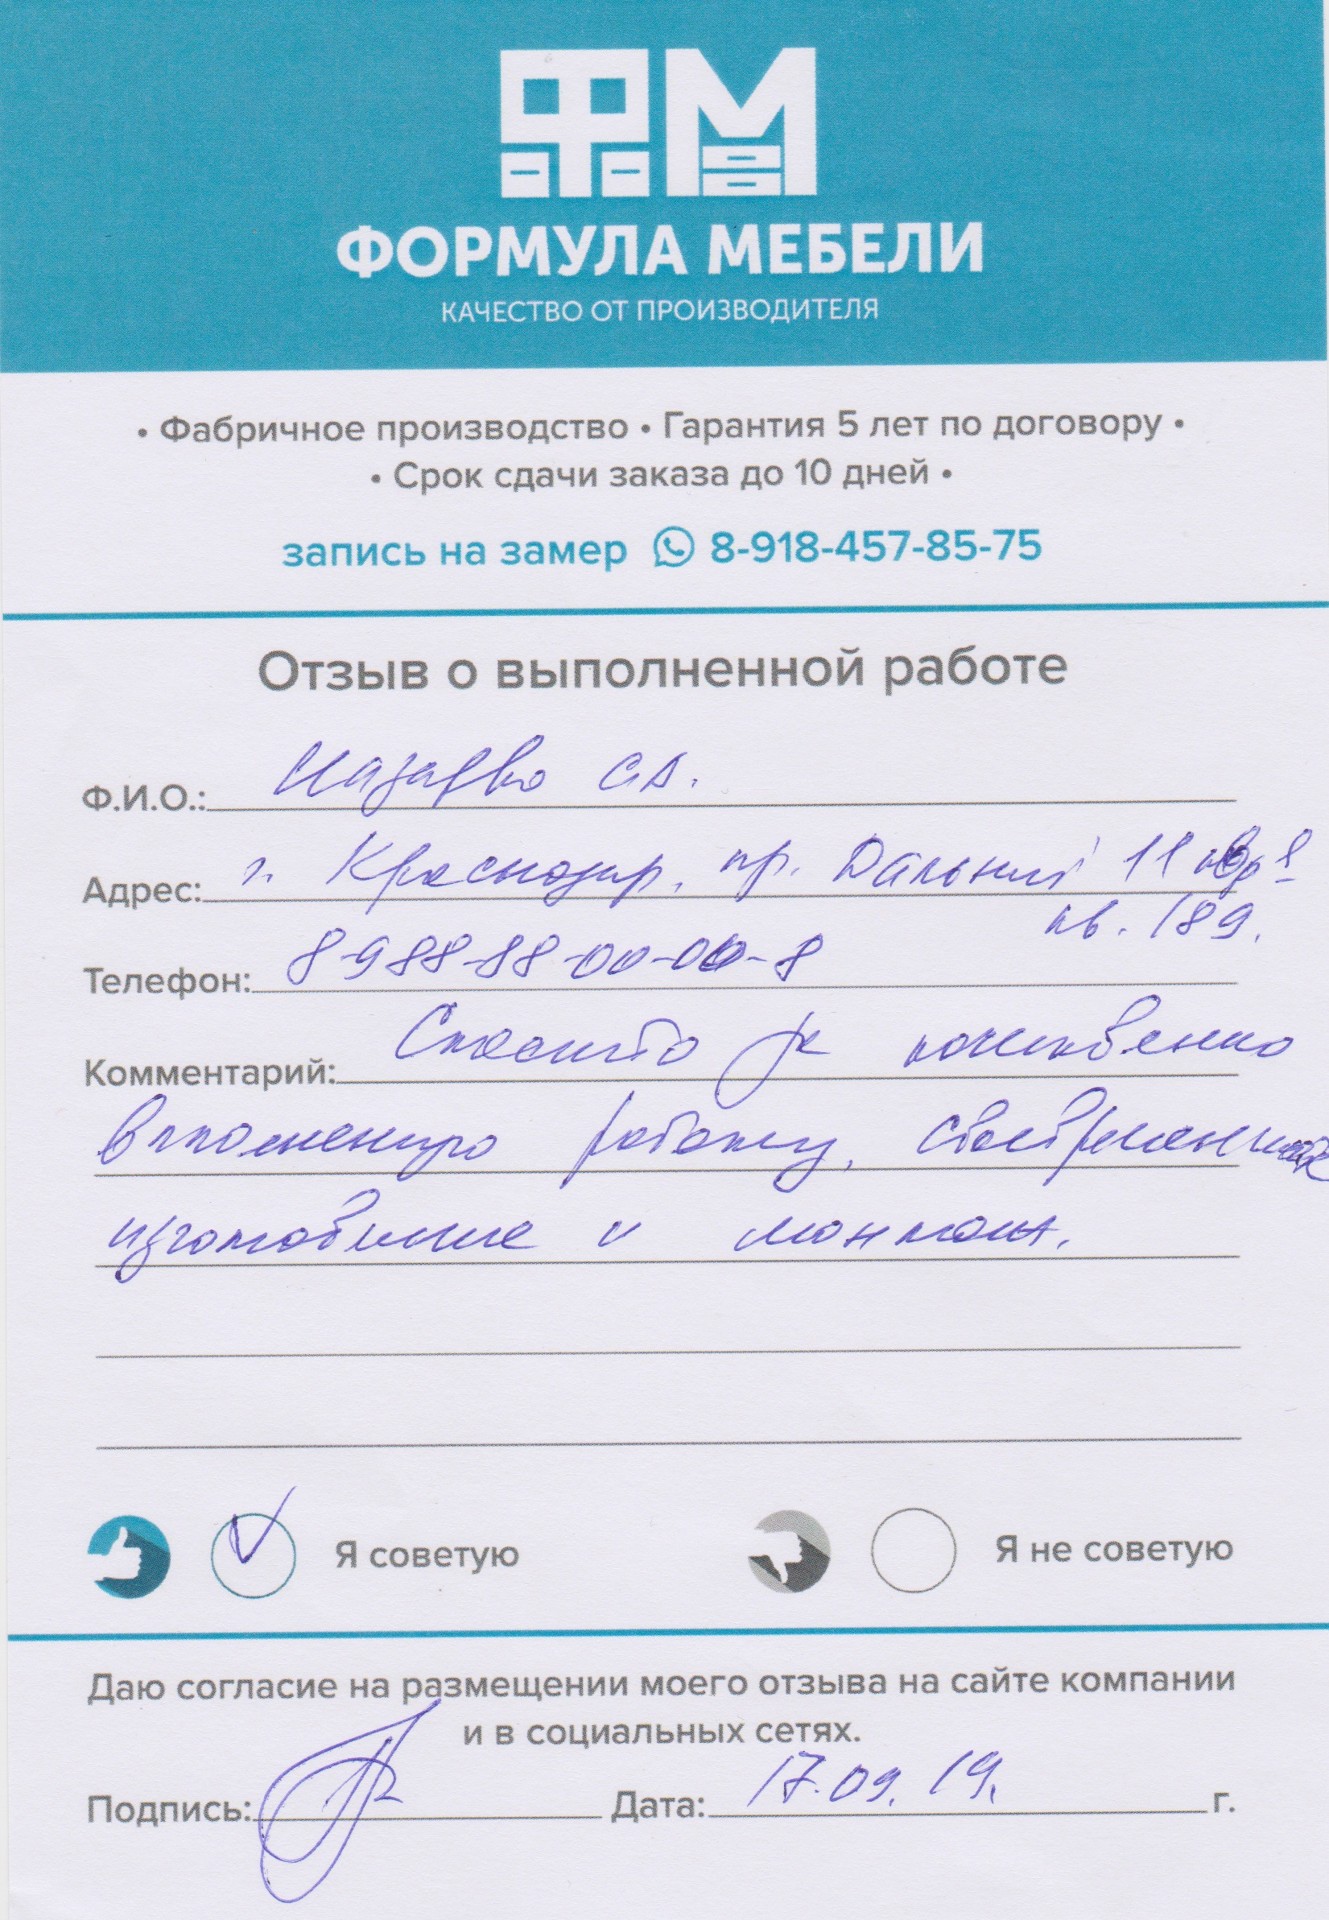 ФМ
ФОРМУЛА МЕБЕЛИ
КАЧЕСТВО ОТ ПРОИЗВОДИТЕЛЯ
• Фабричное производство • Гарантия 5 лет по договору •
• Срок сдачи заказа до 10 дней •
запись на замер 8-918-457-85-75
Отзыв о выполненной работе
Ф.И.О.: С.А.
Адрес: г. Краснодар, пр. Дальний 11
кв. 189.
Телефон: 8-988-88-00-00-8
Комментарий: Спасибо за качественно
выполненную работу, своевременное
изготовление и монтаж.
Я советую Я не советую
Даю согласие на размещении моего отзыва на сайте компании
и в социальных сетях.
Подпись: Дата: 17.09.19. г.